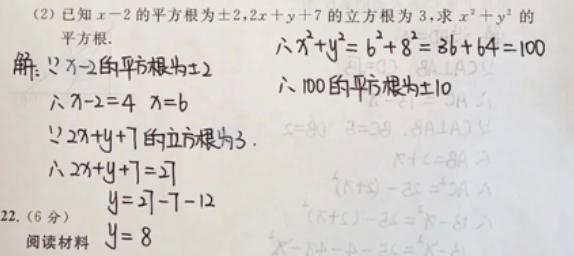 (2) 已知 x－2 的平方根为±2,2x＋y＋7 的立方根为 3,求 x²＋y² 的
平方根.
解:∵x-2的平方根为±2
∴x-2=4 x=6
∵2x+y+7的立方根为3.
∴2x+y+7=27
y=27-7-12
y=8
∴x²+y²=6²+8²=36+64=100
∴100的平方根为±10
22.(6 分)
阅读材料